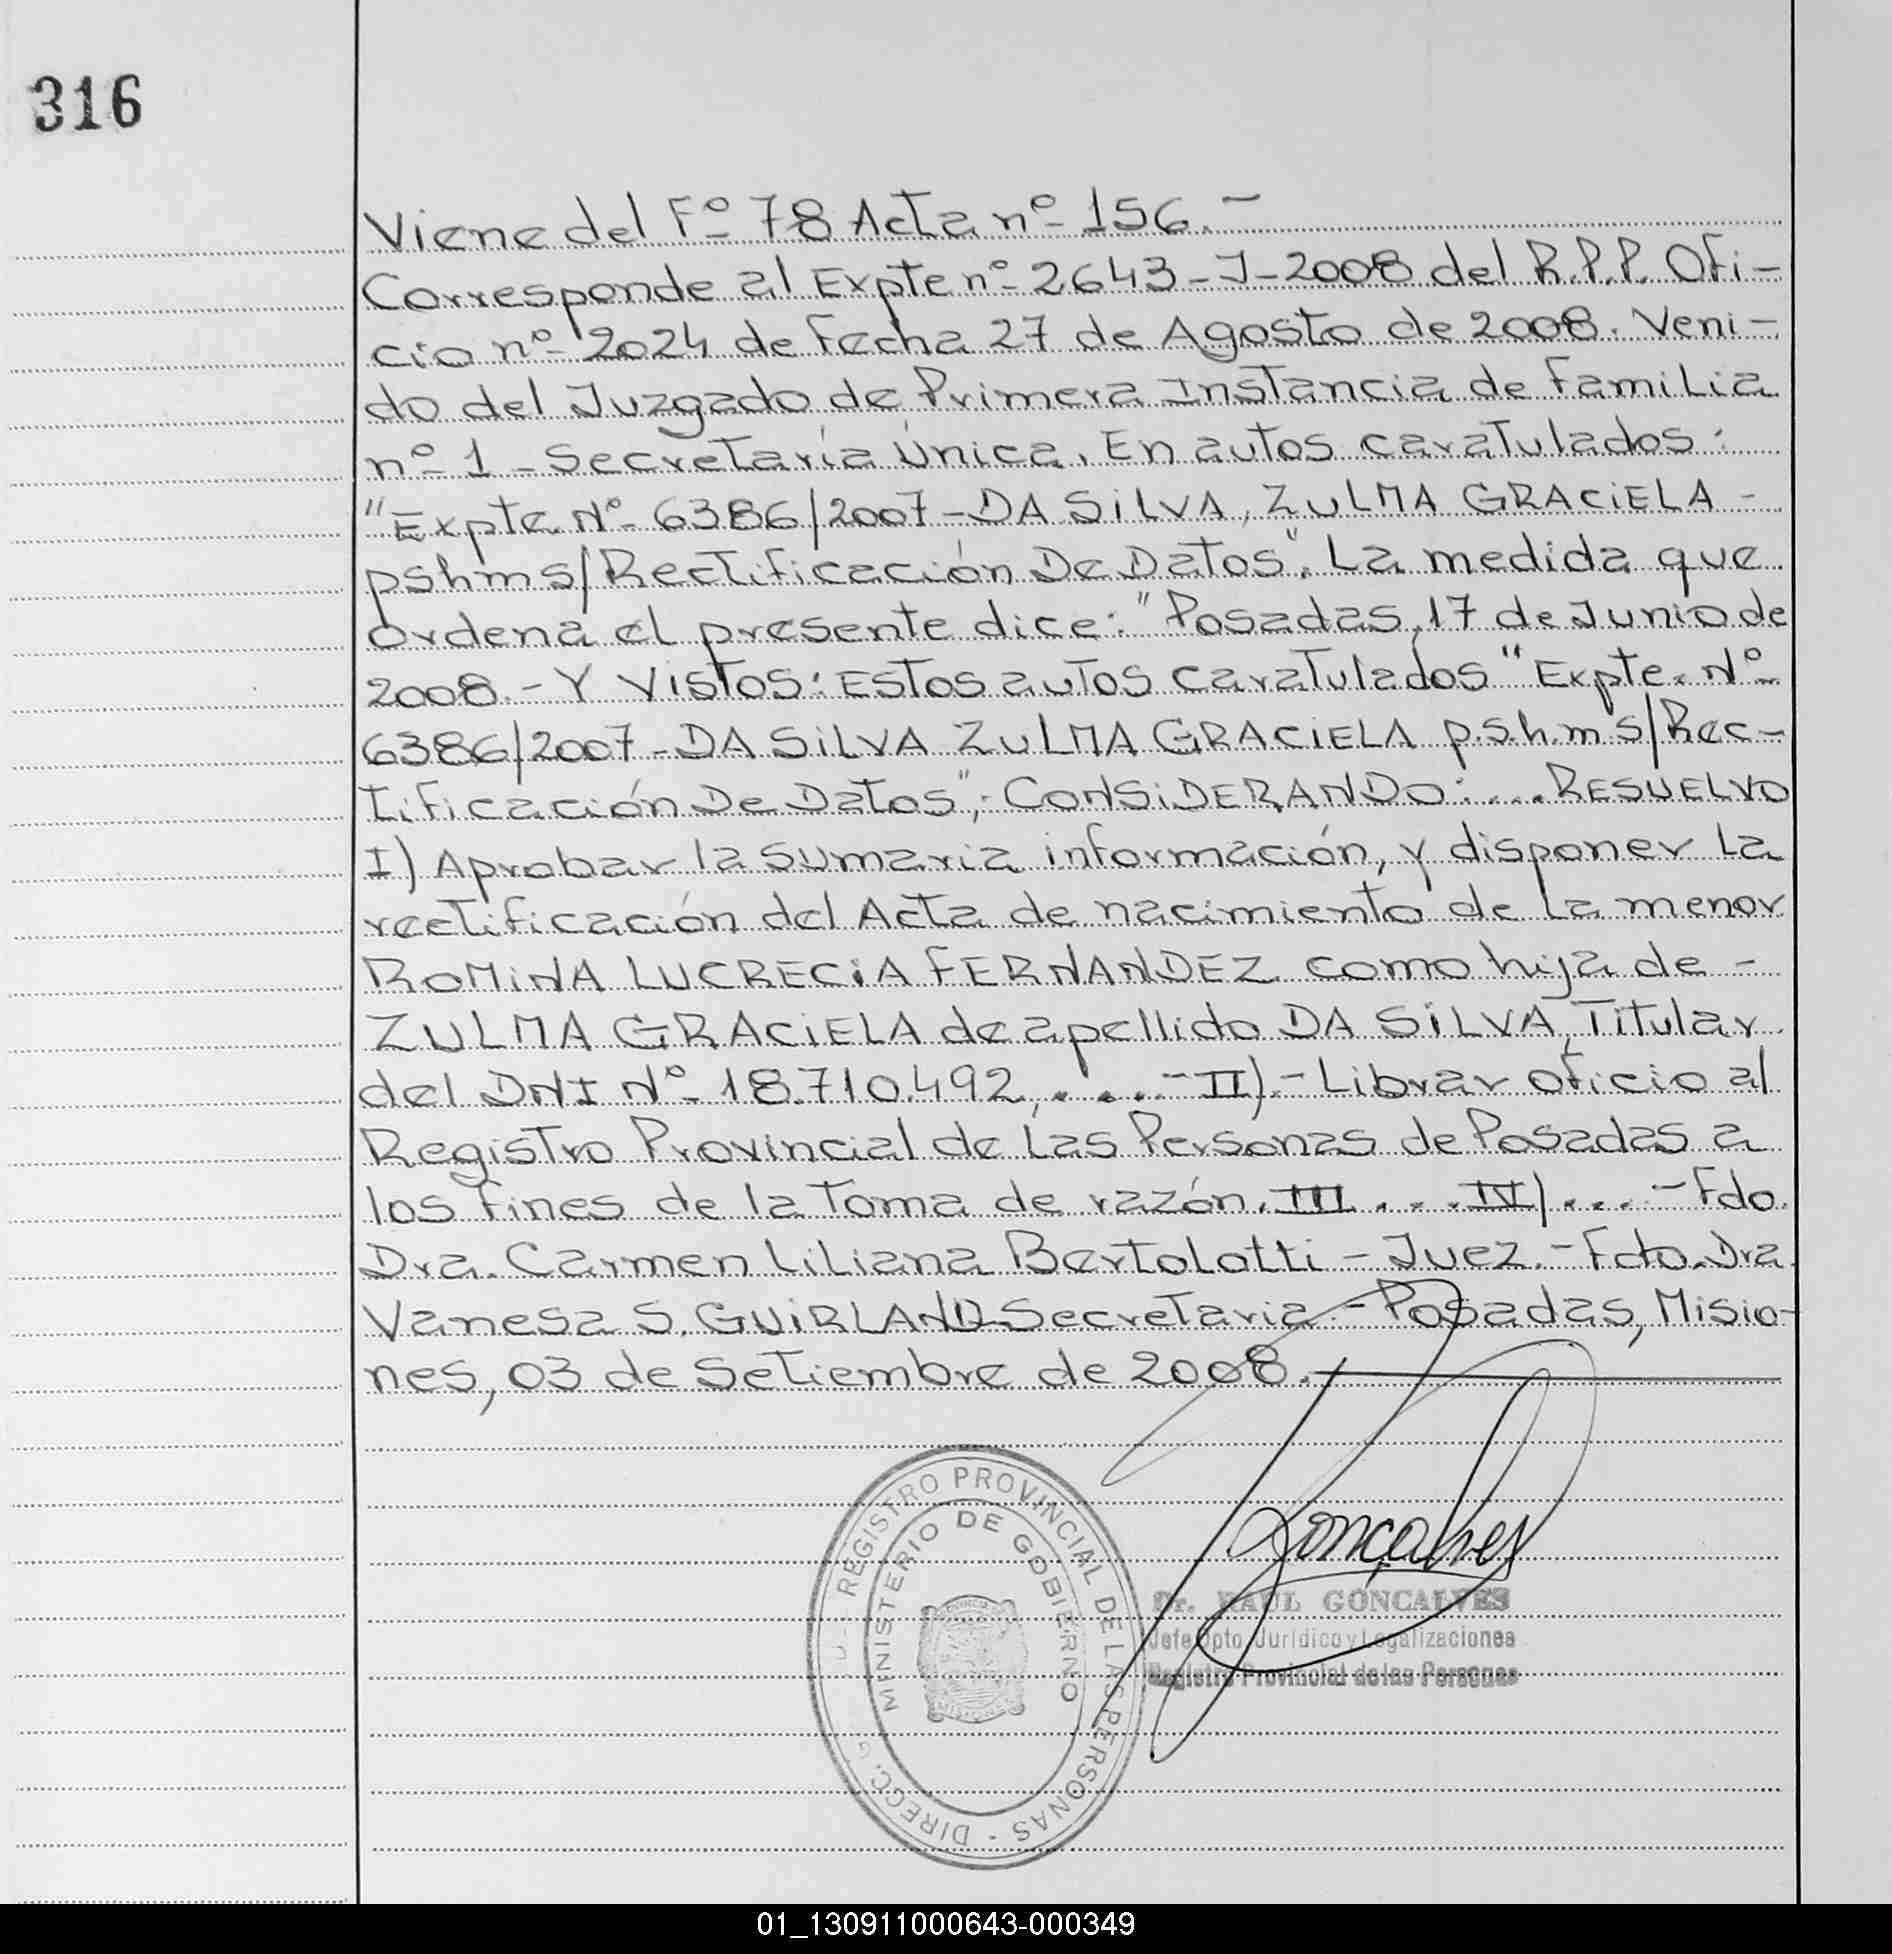 316
Viene del Fº 78 Acta nº 156.-
Corresponde al Expte nº 2643-J-2008 del R.P.P. Ofi-
cio nº 2024 de Fecha 27 de Agosto de 2008. Veni-
do del Juzgado de Primera Instancia de Familia
nº 1 - Secretaría Única. En autos caratulados:
"Expte. Nº 6386/2007-DA SILVA, ZULMA GRACIELA -
pshm s/Rectificación De Datos". La medida que
ordena el presente dice: "Posadas, 17 de Junio de
2008.- Y VISTOS: Estos autos caratulados "Expte. Nº
6386/2007-DA SILVA ZULMA GRACIELA p.s.h.m s/Rec-
tificación De Datos"; CONSIDERANDO:....RESUELVO
I) Aprobar la sumaria información, y disponer la
rectificación del Acta de nacimiento de la menor
ROMINA LUCRECIA FERNANDEZ como hija de -
ZULMA GRACIELA de apellido DA SILVA, Titular
del DNI Nº 18.710.492,....-II).-Librar oficio al
Registro Provincial de las Personas de Posadas a
los fines de la toma de razón. III....IV)...-Fdo.
Dra. Carmen Liliana Bertolotti - Juez.-Fdo. Dra.
Vanesa S. GUIRLAND Secretaria.-Posadas, Misio-
nes, 03 de Setiembre de 2008.
REGISTRO PROVINCIAL DE LAS PERSONAS - DIRECC. G
MINISTERIO DE GOBIERNO
PROVINCIA
MISIONES
Gonçalves
Dr. RAUL GONCALVES
Jefe Dpto. Jurídico y Legalizaciones
Registro Provincial de las Personas
01_130911000643-000349